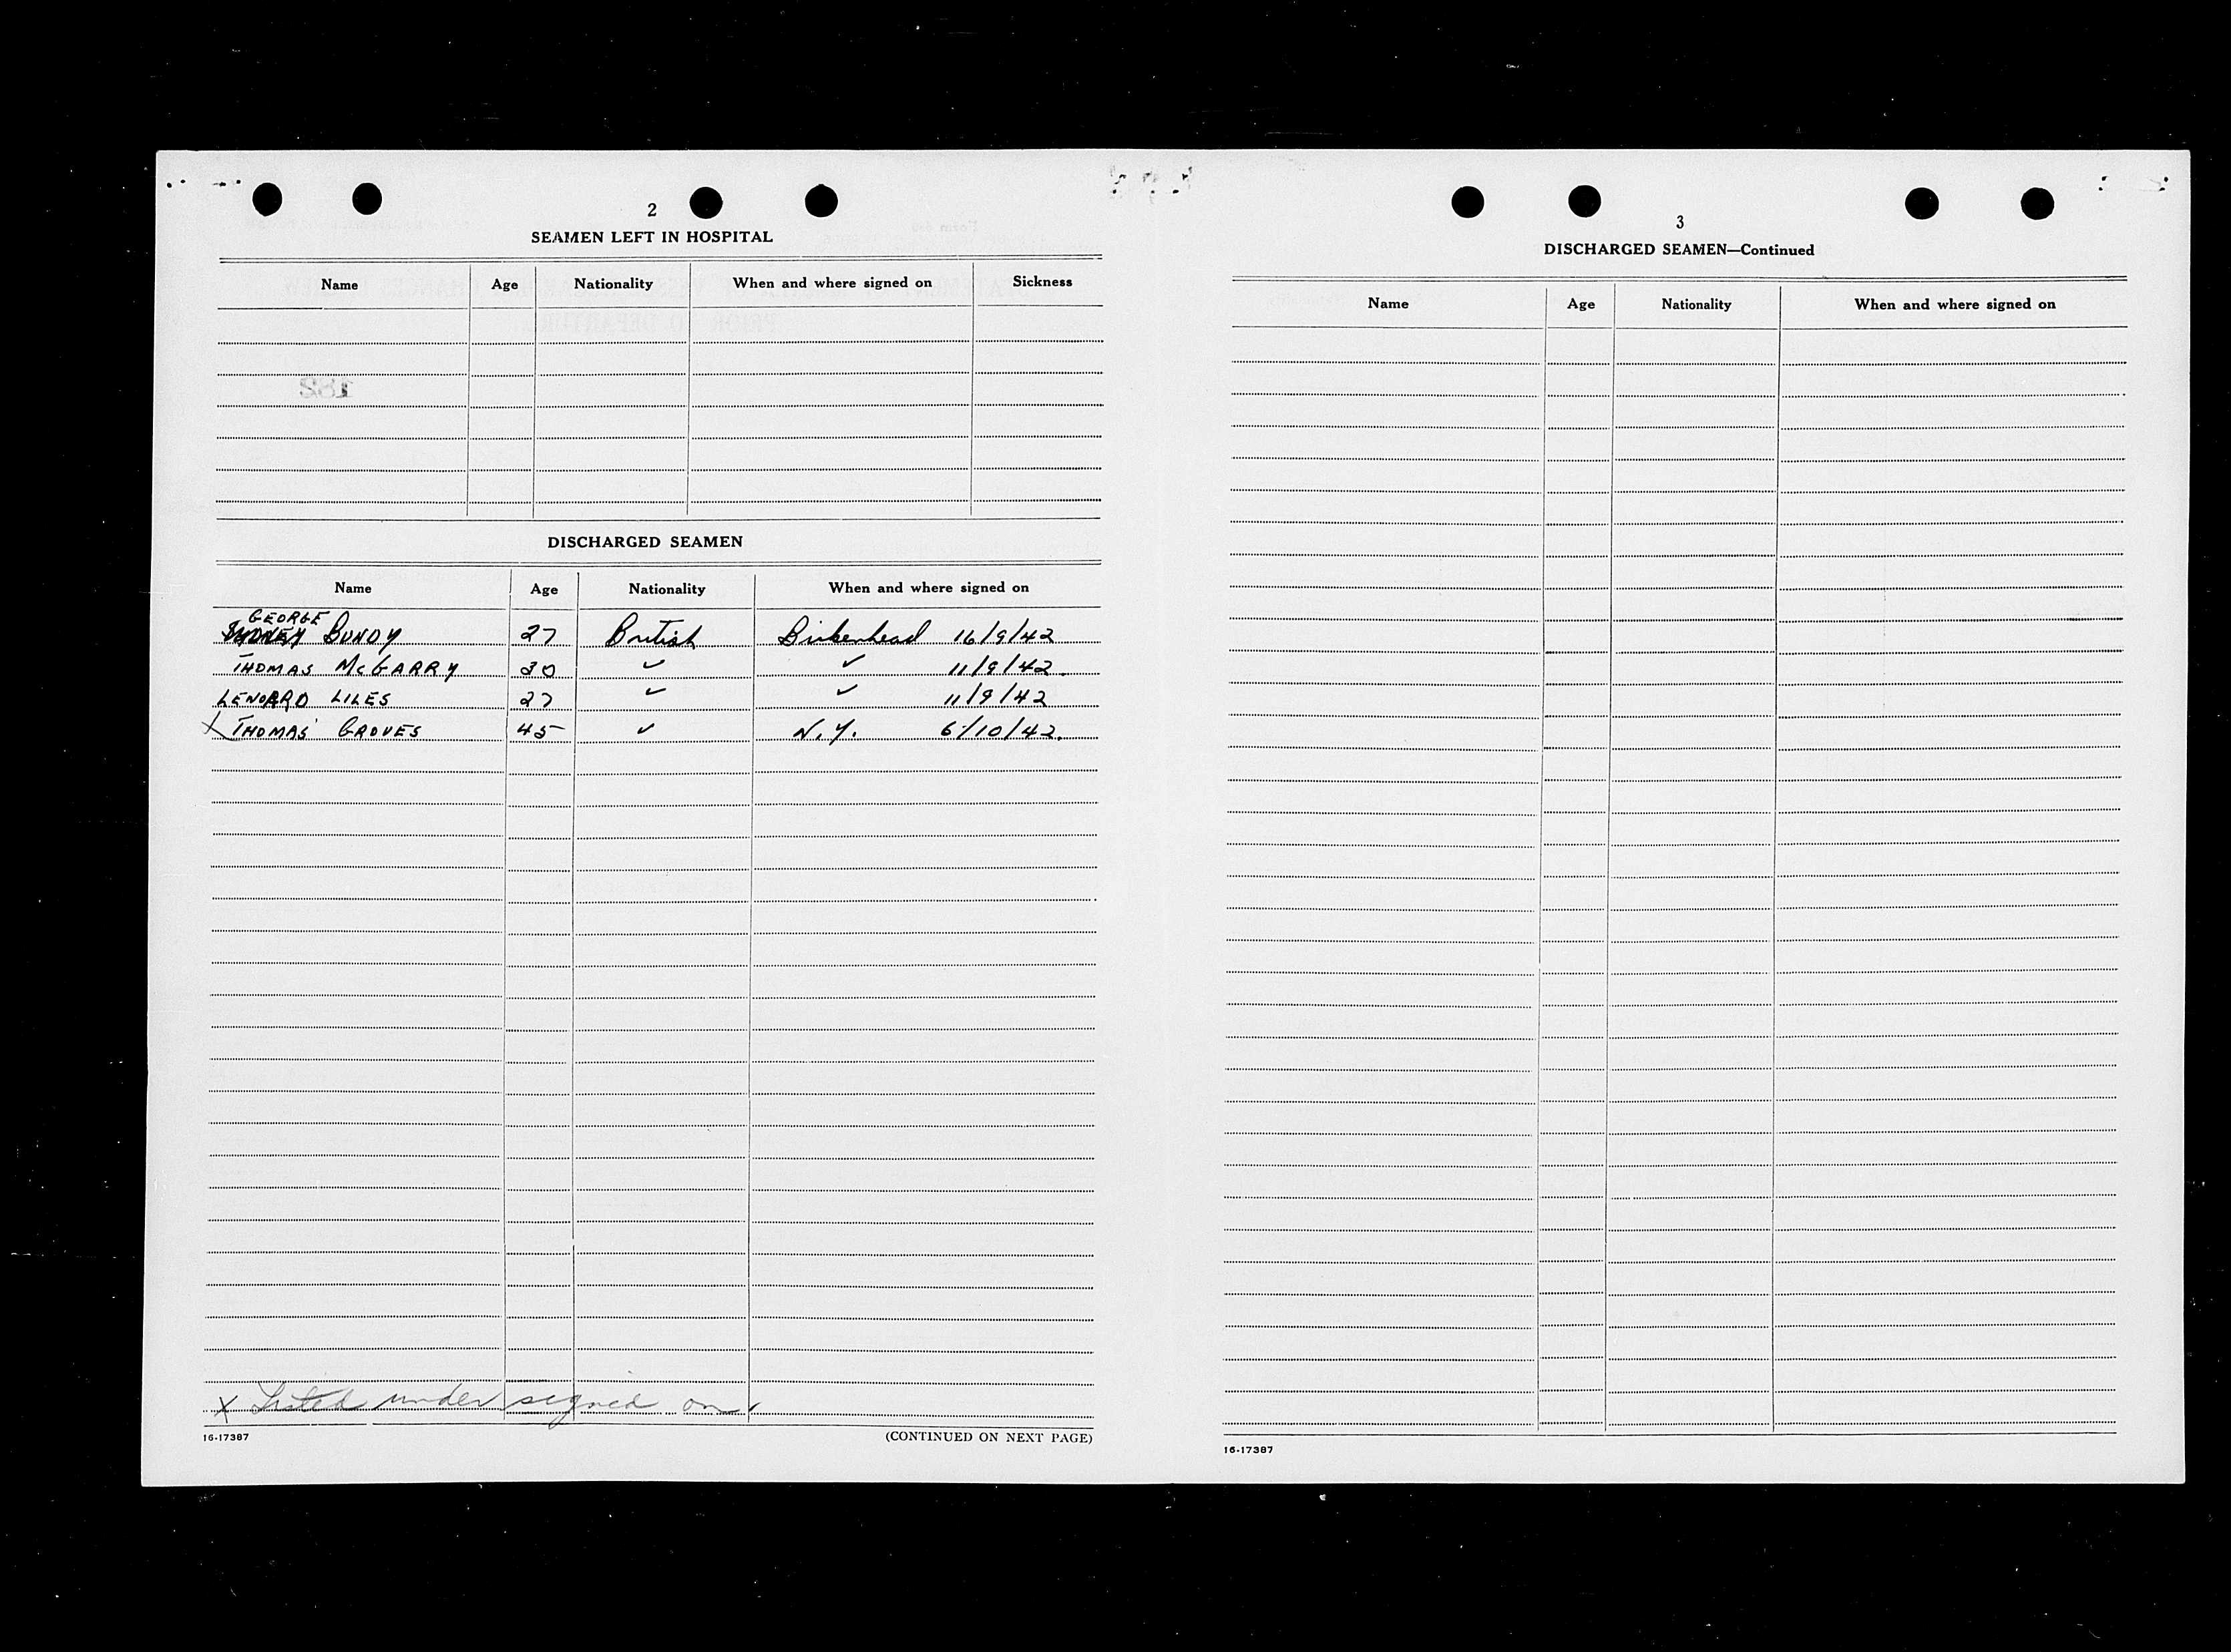 2
SEAMEN LEFT IN HOSPITAL
Name Age Nationality When and where signed on Sickness
DISCHARGED SEAMEN
Name Age Nationality When and where signed on
GEORGE
BUNDY 27 British Birkenhead 16/9/42
THOMAS McGARRY 30 ✓ ✓ 11/9/42.
LENOARD LILES 27 ✓ ✓ 11/9/42
X THOMAS GROVES 45 ✓ N.Y. 6/10/42.
X Listed under signed on.
16-17387 (CONTINUED ON NEXT PAGE)
3
DISCHARGED SEAMEN—Continued
Name Age Nationality When and where signed on
16-17387